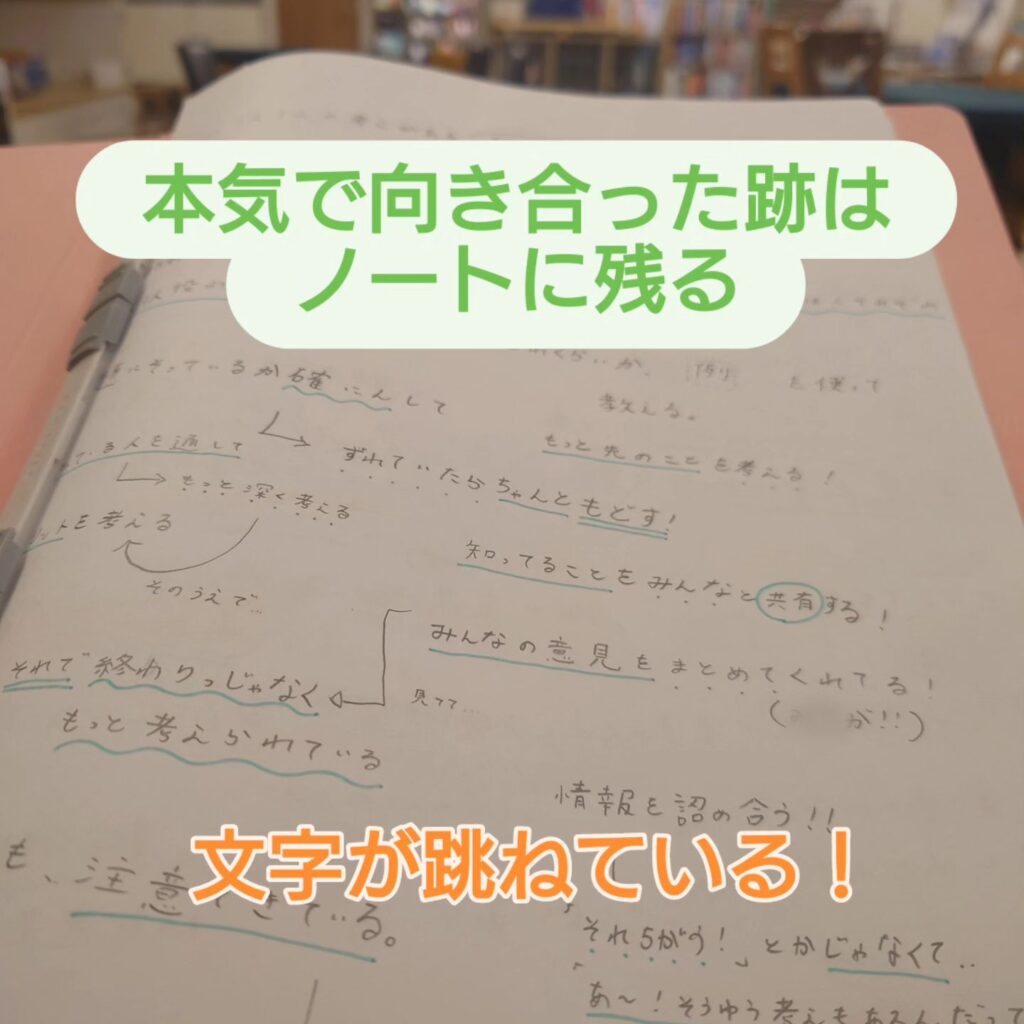 本気で向き合った跡は
ノートに残る
っているか確にんして
ずれていたらちゃんともどす!
いる人を通して
もっと深く考える
トを考える
そのうえで…
それで終わりっじゃなく
もっと考えられている
見てて…
も、注意できている。
を使って
考える。
もっと先のことを考える!
知ってることをみんなと共有する!
みんなの意見をまとめてくれてる!
(が!!)
情報を認め合う!!
文字が跳ねている!
「それちがう!」とかじゃなくて..
「あ〜!そうゆう考えもあるんだって